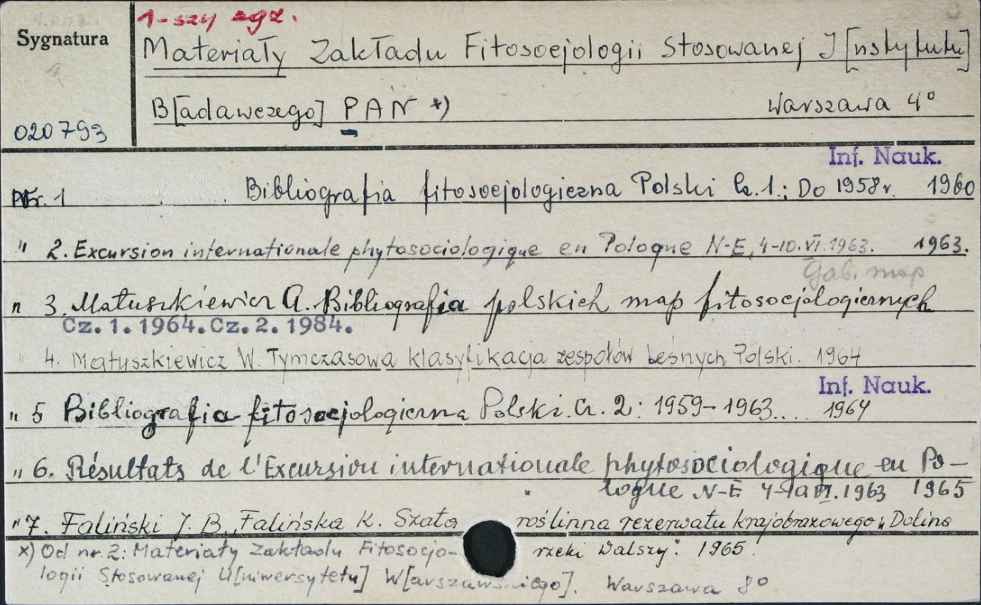 1-szy egz.
Sygnatura
Materiały Zakładu Fitosocjologii Stosowanej I[nstytutu]
B[adawczego] PAN *)
Warszawa 4°
020793
Inf. Nauk.
Nr. 1 Bibliografia fitosocjologiczna Polski Cz. 1.: Do 1958 r. 1960
" 2. Excursion internationale phytosociologique en Pologne N-E, 4-10.VI.1963. 1963.
Gab. map
" 3. Matuszkiewicz A. Bibliografia polskich map fitosocjologicznych
Cz. 1. 1964. Cz. 2. 1984.
4. Matuszkiewicz W. Tymczasowa klasyfikacja zespołów leśnych Polski. 1964
Inf. Nauk.
" 5 Bibliografia fitosocjologiczna Polski. Cz. 2: 1959-1963.... 1964
" 6. Résultats de l'Excursion internationale phytosociologique en Po-
logne N-E 4-10 VI.1963 1965
" 7. Faliński J. B., Falińska K. Szata roślinna rezerwatu krajobrazowego „Dolina
rzeki Wałszy". 1965.
x) Od nr. 2: Materiały Zakładu Fitosocjo-
logii Stosowanej U[niwersytetu] W[arszawskiego]. Warszawa 8°